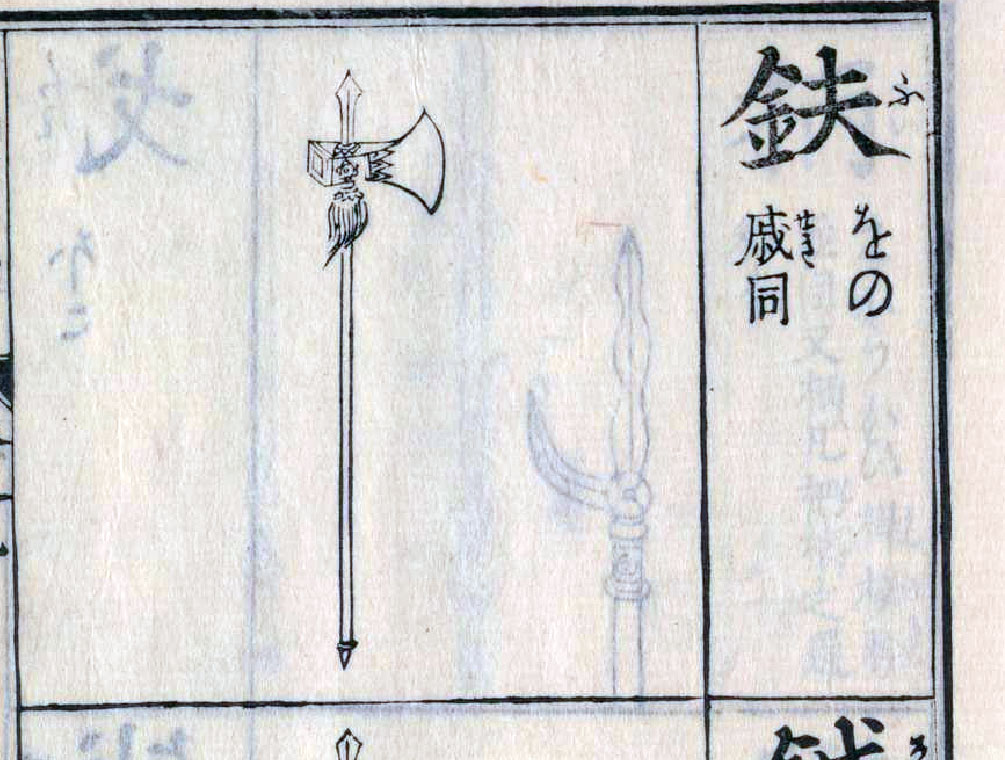 鈇 ふ
をの
戚同 せき